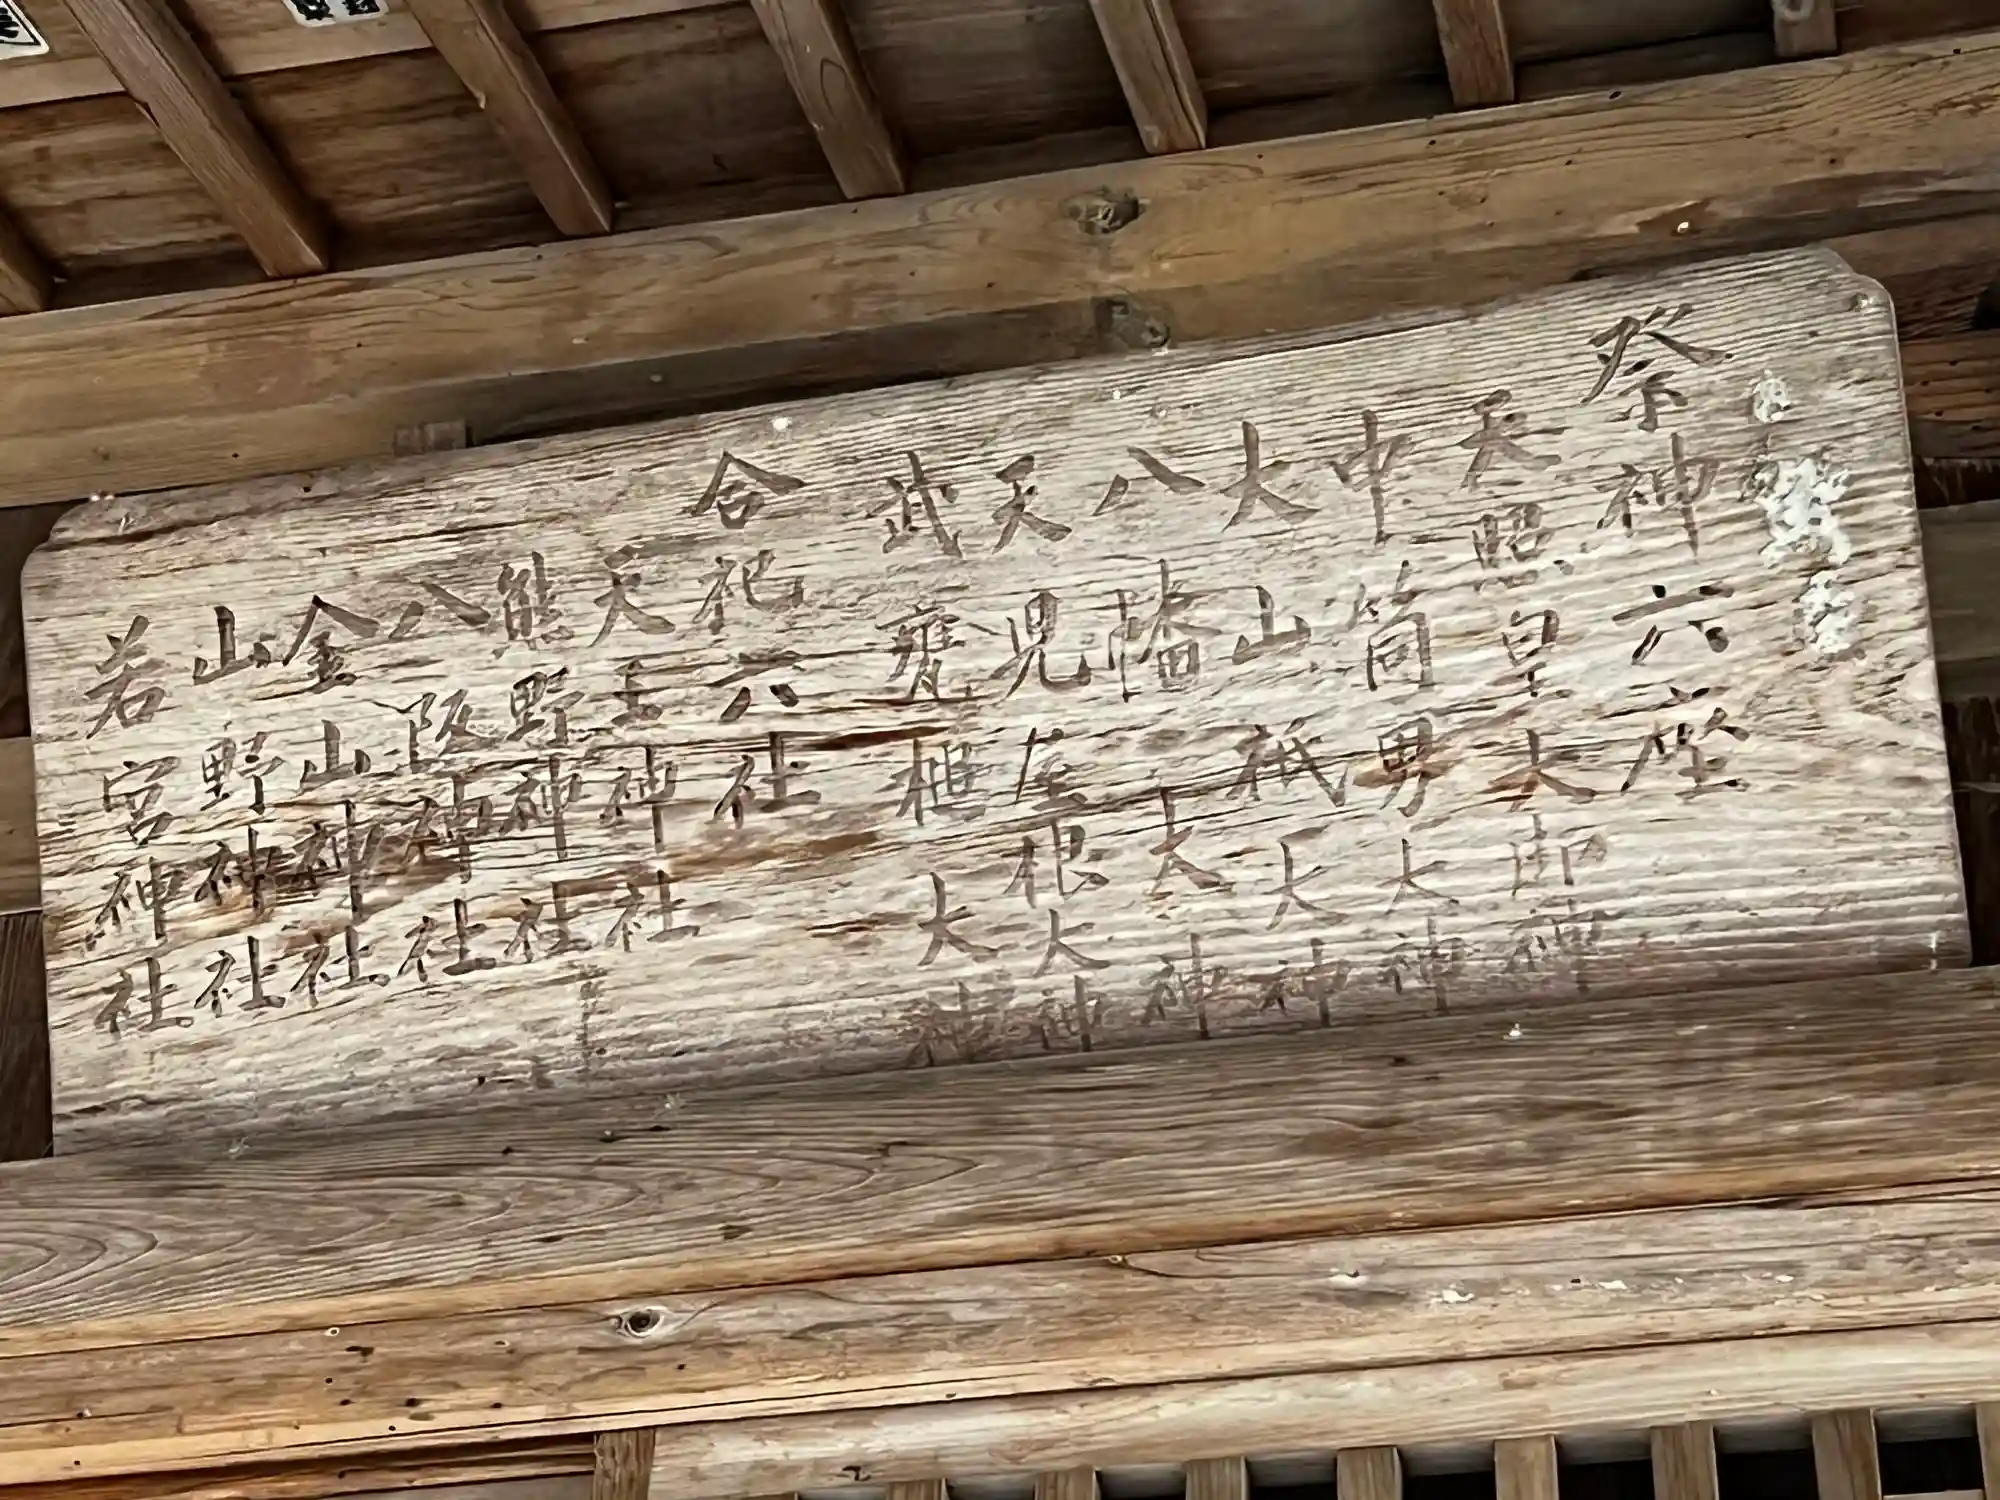 祭神六座
天照皇大御神
中筒男大神
大山祇大神
八幡大神
天児屋根大神
武甕槌大神
合祀六社
天王神社
熊野神社
八阪神社
金山神社
山野神社
若宮神社